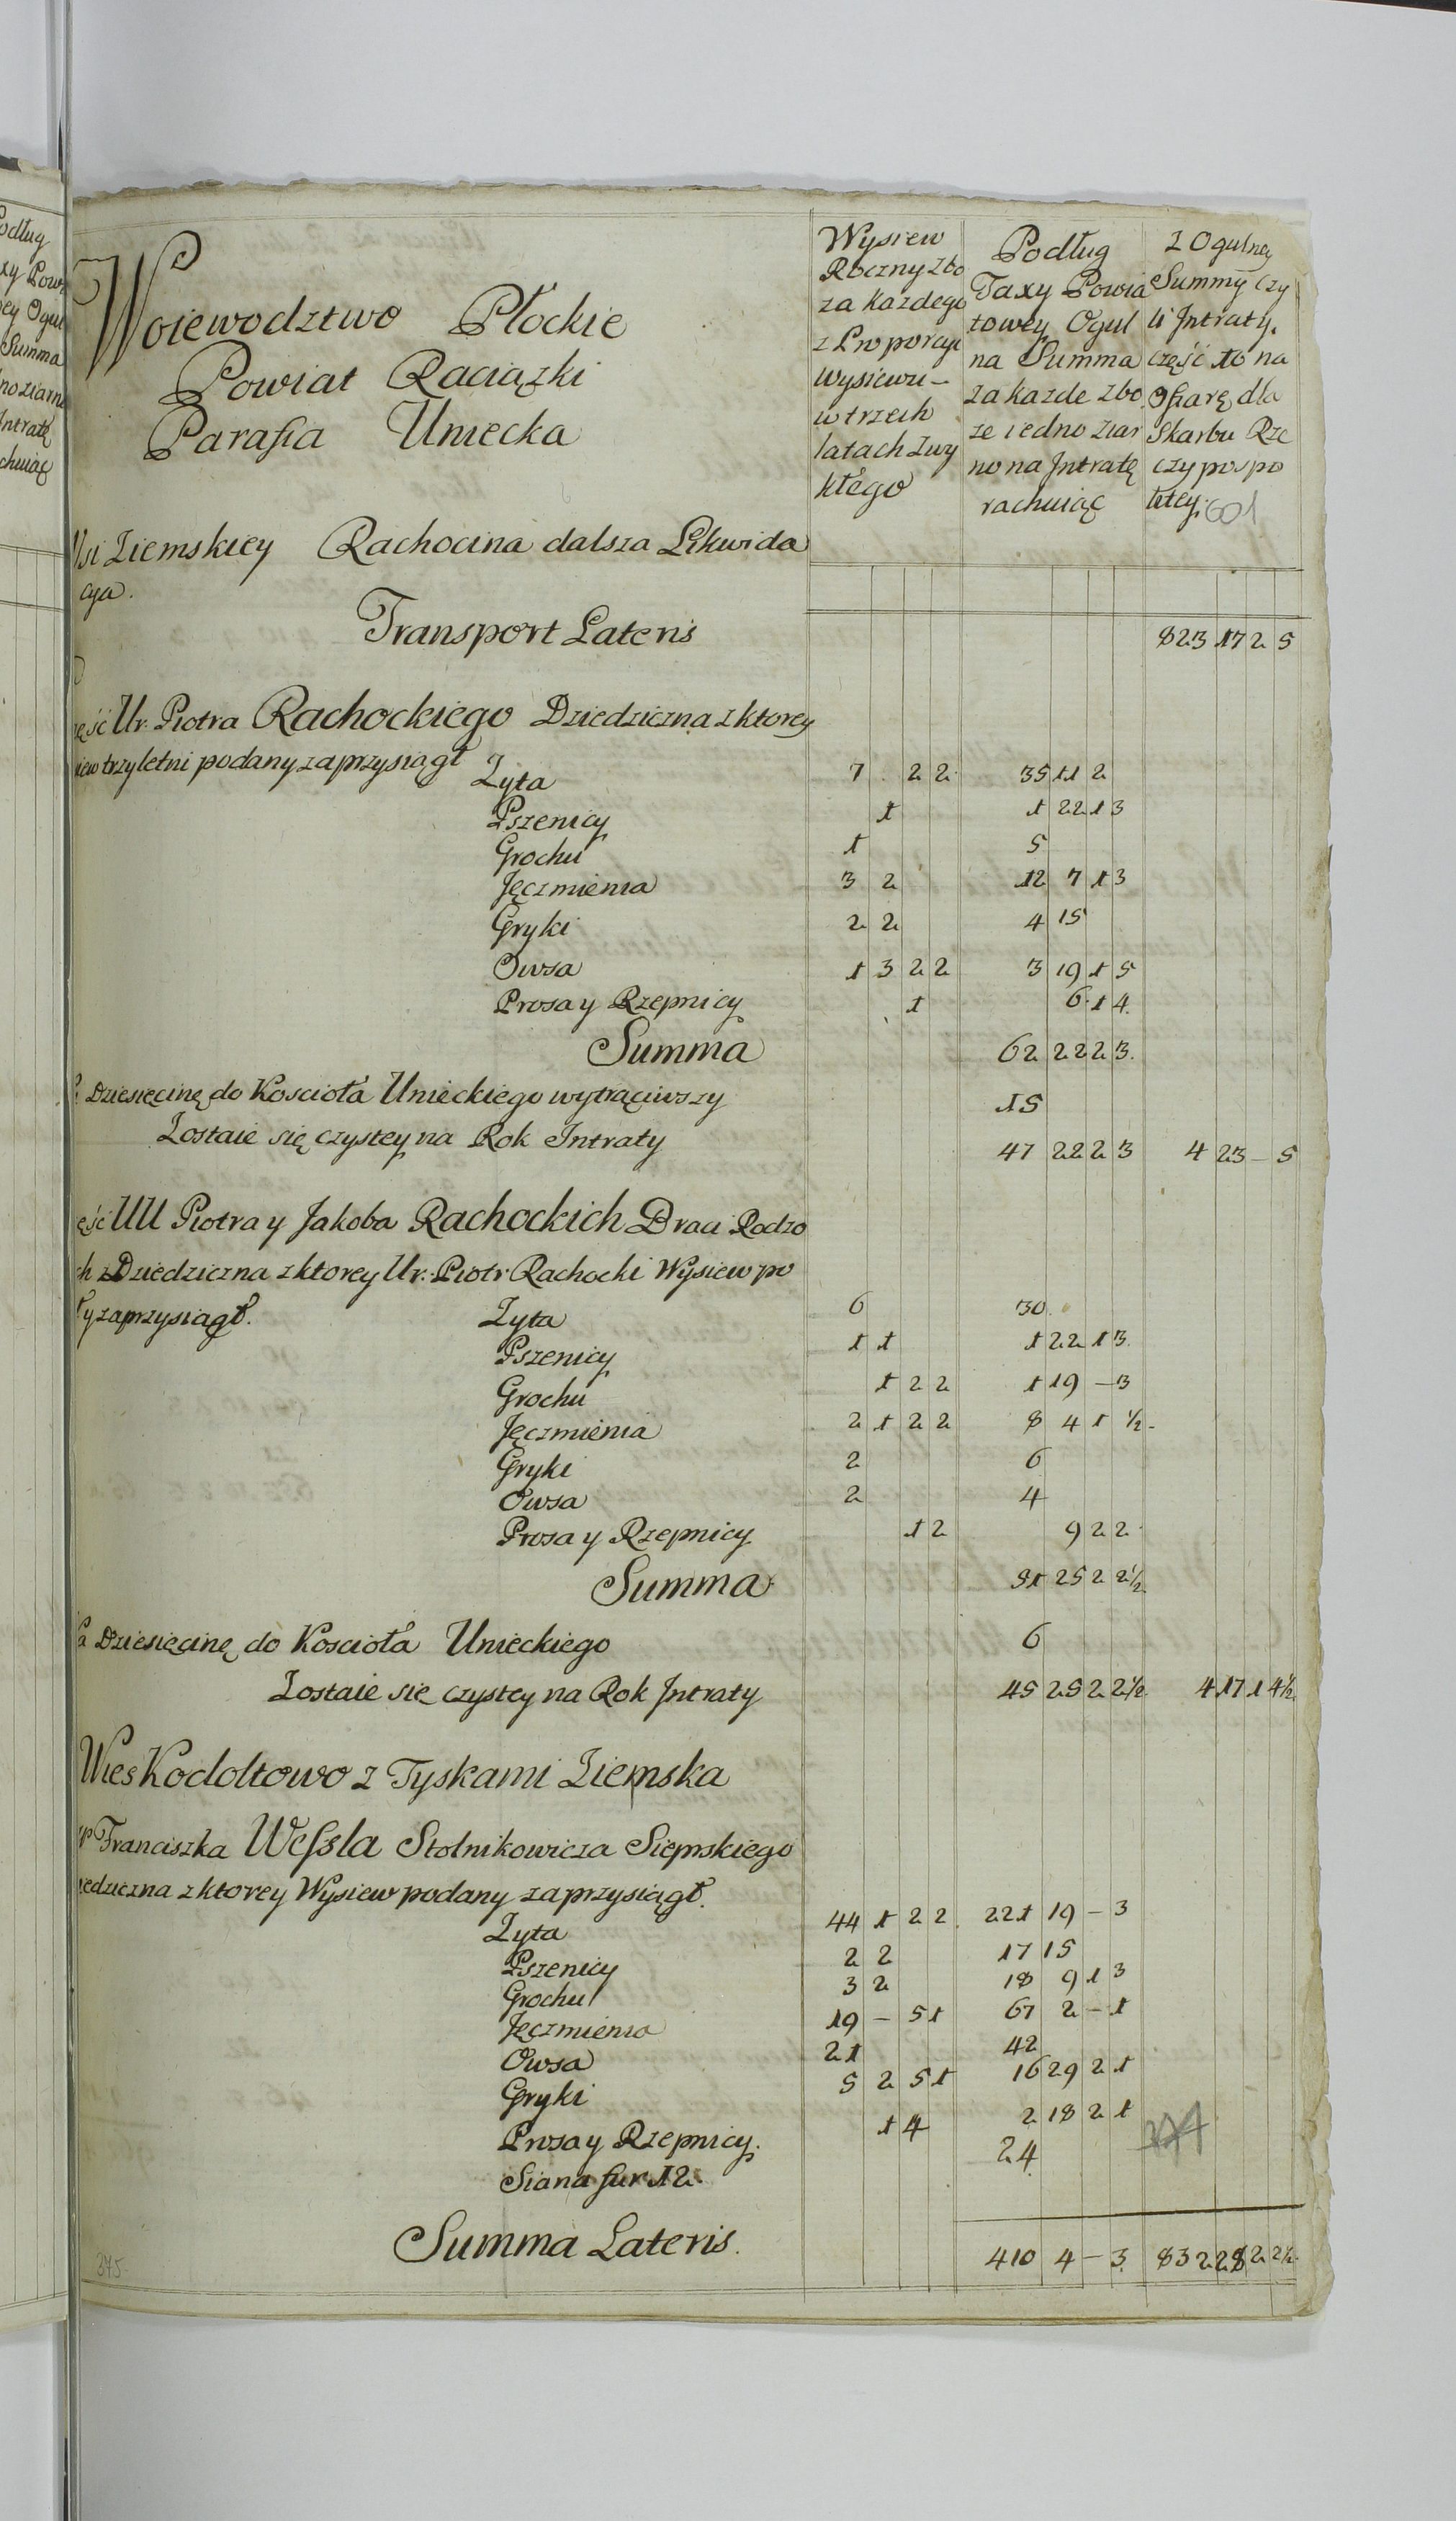 Woiewodztwo Płockie
Powiat Raciązki
Parafia Uniecka
Wysiew
Roczny zbo
za kazdego
z Proporcyi
Wysiewu –
w trzech
latach zwy
kłego
Podług
Taxy Powia
towey Ogul
na Summa
za kazde zbo
ze iedno ziar
no na Jntratę
rachuiąc
Z Ogulney
Summy czy
li Jntraty.
część 10 na
Ofiarę dla
Skarbu Rze
czypospo
litey.
601
Wsi Ziemskiey Rachocina dalsza Likwida
cya.
Transport Lateris 823 17 2 5
ęść Ur. Piotra Rachockiego Dziedziczna z ktorey
iew trzyletni podany zaprzysiągł
Zyta 7 . 2 2 35 11 2
Pszenicy 1 1 22 1 3
Grochu 1 5
Jęczmienia 3 2 12 7 1 3
Gryki 2 2 4 15
Owsa 1 3 2 2 3 19 1 5
Prosa y Rzepnicy 1 6 1 4
Summa 62 22 2 3
Dziesięcinę do Kościoła Unieckiego wytrąciwszy 15
Zostaie się czystey na Rok Intraty 47 22 2 3 4 23 – 5
ęść UU Piotra y Jakoba Rachockich Braci Rodzo
ch Dziedziczna z ktorey Ur. Piotr Rachocki Wysiew po
y zaprzysiągł.
Zyta 6 30
Pszenicy 1 1 1 22 1 3
Grochu 1 2 2 1 19 – 3
Jęczmienia 2 1 2 2 8 4 1 ½
Gryki 2 6
Owsa 2 4
Prosa y Rzepnicy 1 2 9 2 2
Summa 51 25 2 2½
a Dziesięcinę do Kościoła Unieckiego 6
Zostaie sie czystey na Rok Jntraty 45 25 2 2½ 4 17 1 4½
Wies Kodoltowo z Tyskami Ziemska
Franciszka Weſsla Stolnikowicza Sieprskiego
iedziczna z ktorey Wysiew podany zaprzysiągł.
Zyta 44 1 2 2 221 19 – 3
Pszenicy 2 2 17 15
Grochu 3 2 18 9 1 3
Jęczmienia 19 – 5 1 67 2 – 1
Owsa 21 42
Gryki 5 2 5 1 16 29 2 1
Prosa y Rzepnicy. 1 4 2 18 2 1
Siana fur 12 24
Summa Lateris. 410 4 – 3 832 28 2 2½
375